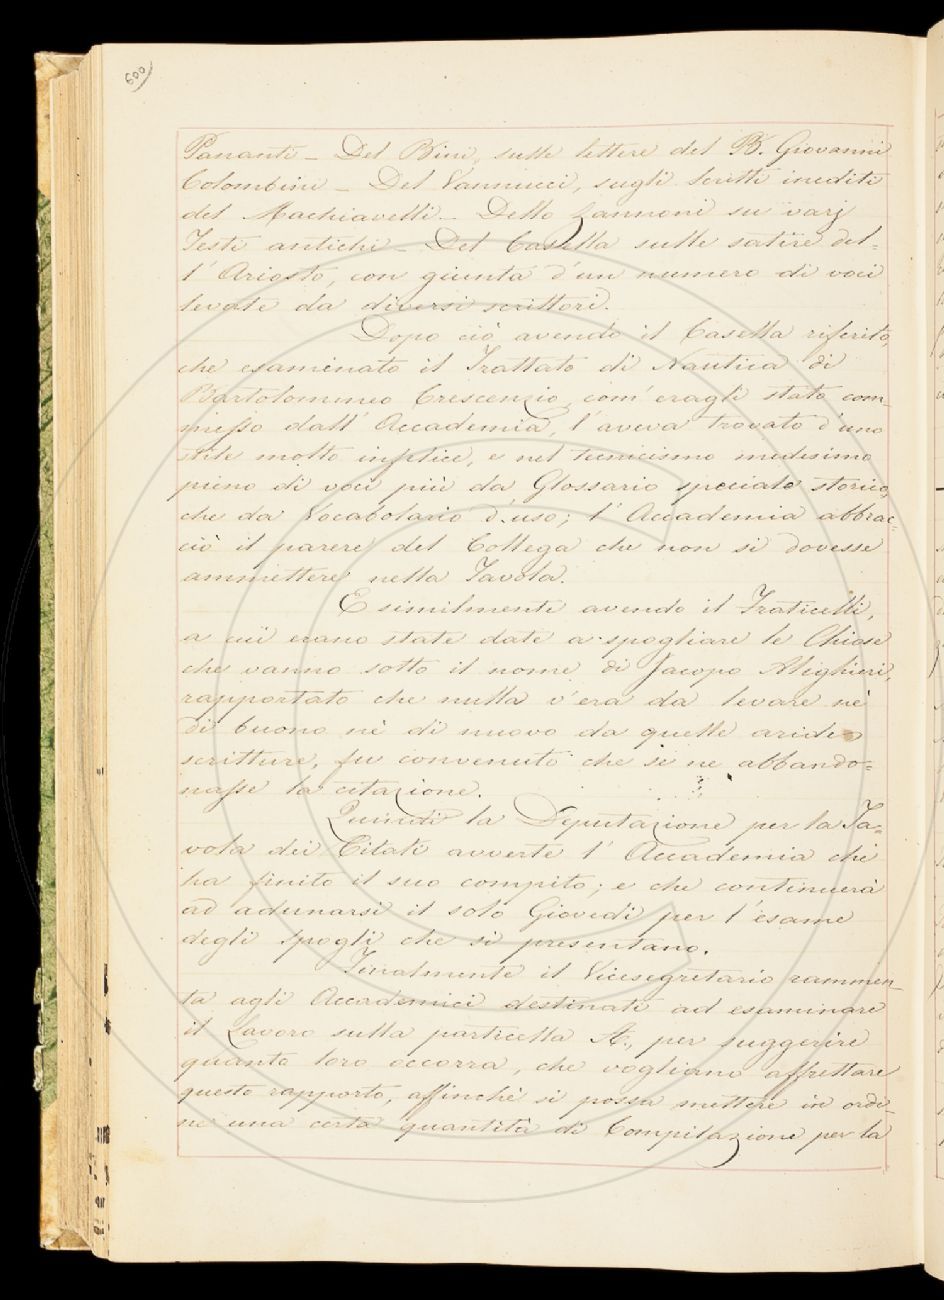 600
Pananti – Del Bini, sulle lettere del B. Giovanni
Colombini – Del Vannucci, sugli scritti inediti
del Machiavelli – Dello Zannoni su varj
Testi antichi – Del Casella sulle satire del-
l'Ariosto, con giunta d'un numero di voci
levate da diversi scrittori.
Dopo ciò avendo il Casella riferito,
che esaminato il Trattato di Nautica di
Bartolommeo Crescenzio, com'eragli stato com-
messo dall'Accademia, l'aveva trovato d'uno
stile molto infelice, e nel tecnicismo medesimo
pieno di voci più da Glossario speciale storico,
che da Vocabolario d'uso; l'Accademia abbrac-
ciò il parere del Collega che non si dovesse
ammettere nella Tavola.
E similmente avendo il Fraticelli,
a cui erano state date a spogliare le Chiose
che vanno sotto il nome di Jacopo Alighieri,
rapportato che nulla v'era da levare nè
di buono nè di nuovo da quelle aride
scritture, fu convenuto che se ne abbando-
nasse la citazione.
Quindi la Deputazione per la Ta-
vola dei Citati avverte l'Accademia che
ha finito il suo compito; e che continuerà
ad adunarsi il solo Giovedì per l'esame
degli spogli che si presentano.
Finalmente il Vicesegretario rammen-
ta agli Accademici destinati ad esaminare
il Lavoro sulla particella A, per suggerire
quanto loro occorra, che vogliano affrettare
questo rapporto, affinchè si possa mettere in ordi-
ne una certa quantità di Compilazione per la